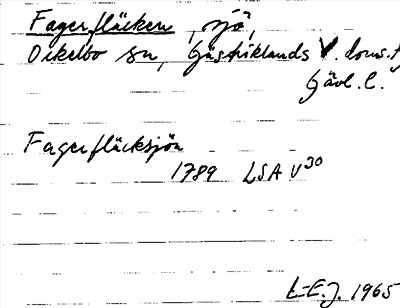 Fagerfläcken, sjö,
Ockelbo sn, Gästriklands V. doms.
Gävl. l.
Fagerfläcksjön
1789 LSA V30
L-E.J. 1965